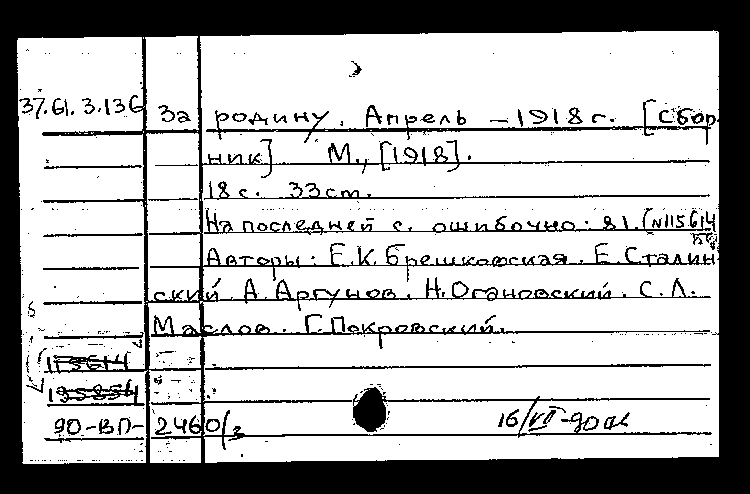 37.61.3.136 За родину. Апрель - 1918 г. [Сбор
ник] М., [1918].
18 с. 33 ст.
На последней с. ошибочно: 81. (N115614
Авторы: Е.К. Брешковская. Е. Сталин
ский А. Аргунов. Н. Огановский. С.Л.
Маслов. Г. Покровский.
115614
195854
90-ВП- 2460/3 16/VII-90